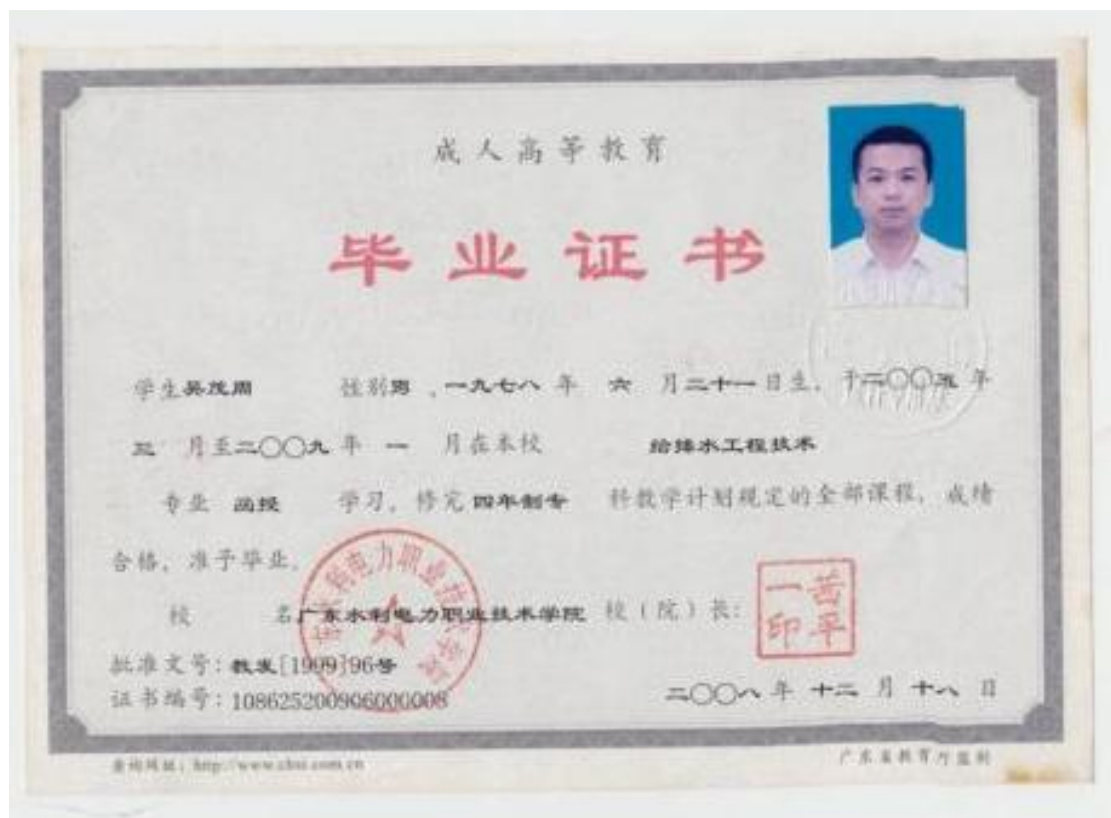 成人高等教育
毕业证书
学生吴茂周 性别男，一九七八年 六 月二十一日生，于二〇〇五年
三 月至二〇〇九年 一 月在本校 给排水工程技术
专业 函授 学习，修完四年制专 科教学计划规定的全部课程，成绩
合格，准予毕业。
校 名广东水利电力职业技术学院 校（院）长：
一茜
印平
批准文号：教发[1999]96号
证书编号：108625200906000008
二〇〇八年 十二 月 十八 日
查询网址：http://www.chsi.com.cn
广东省教育厅监制